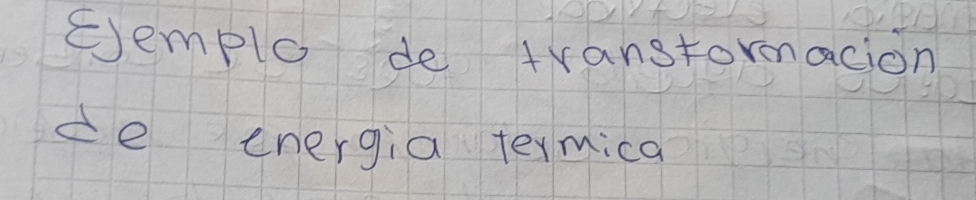 Ejemplo de transformación
de energia termica